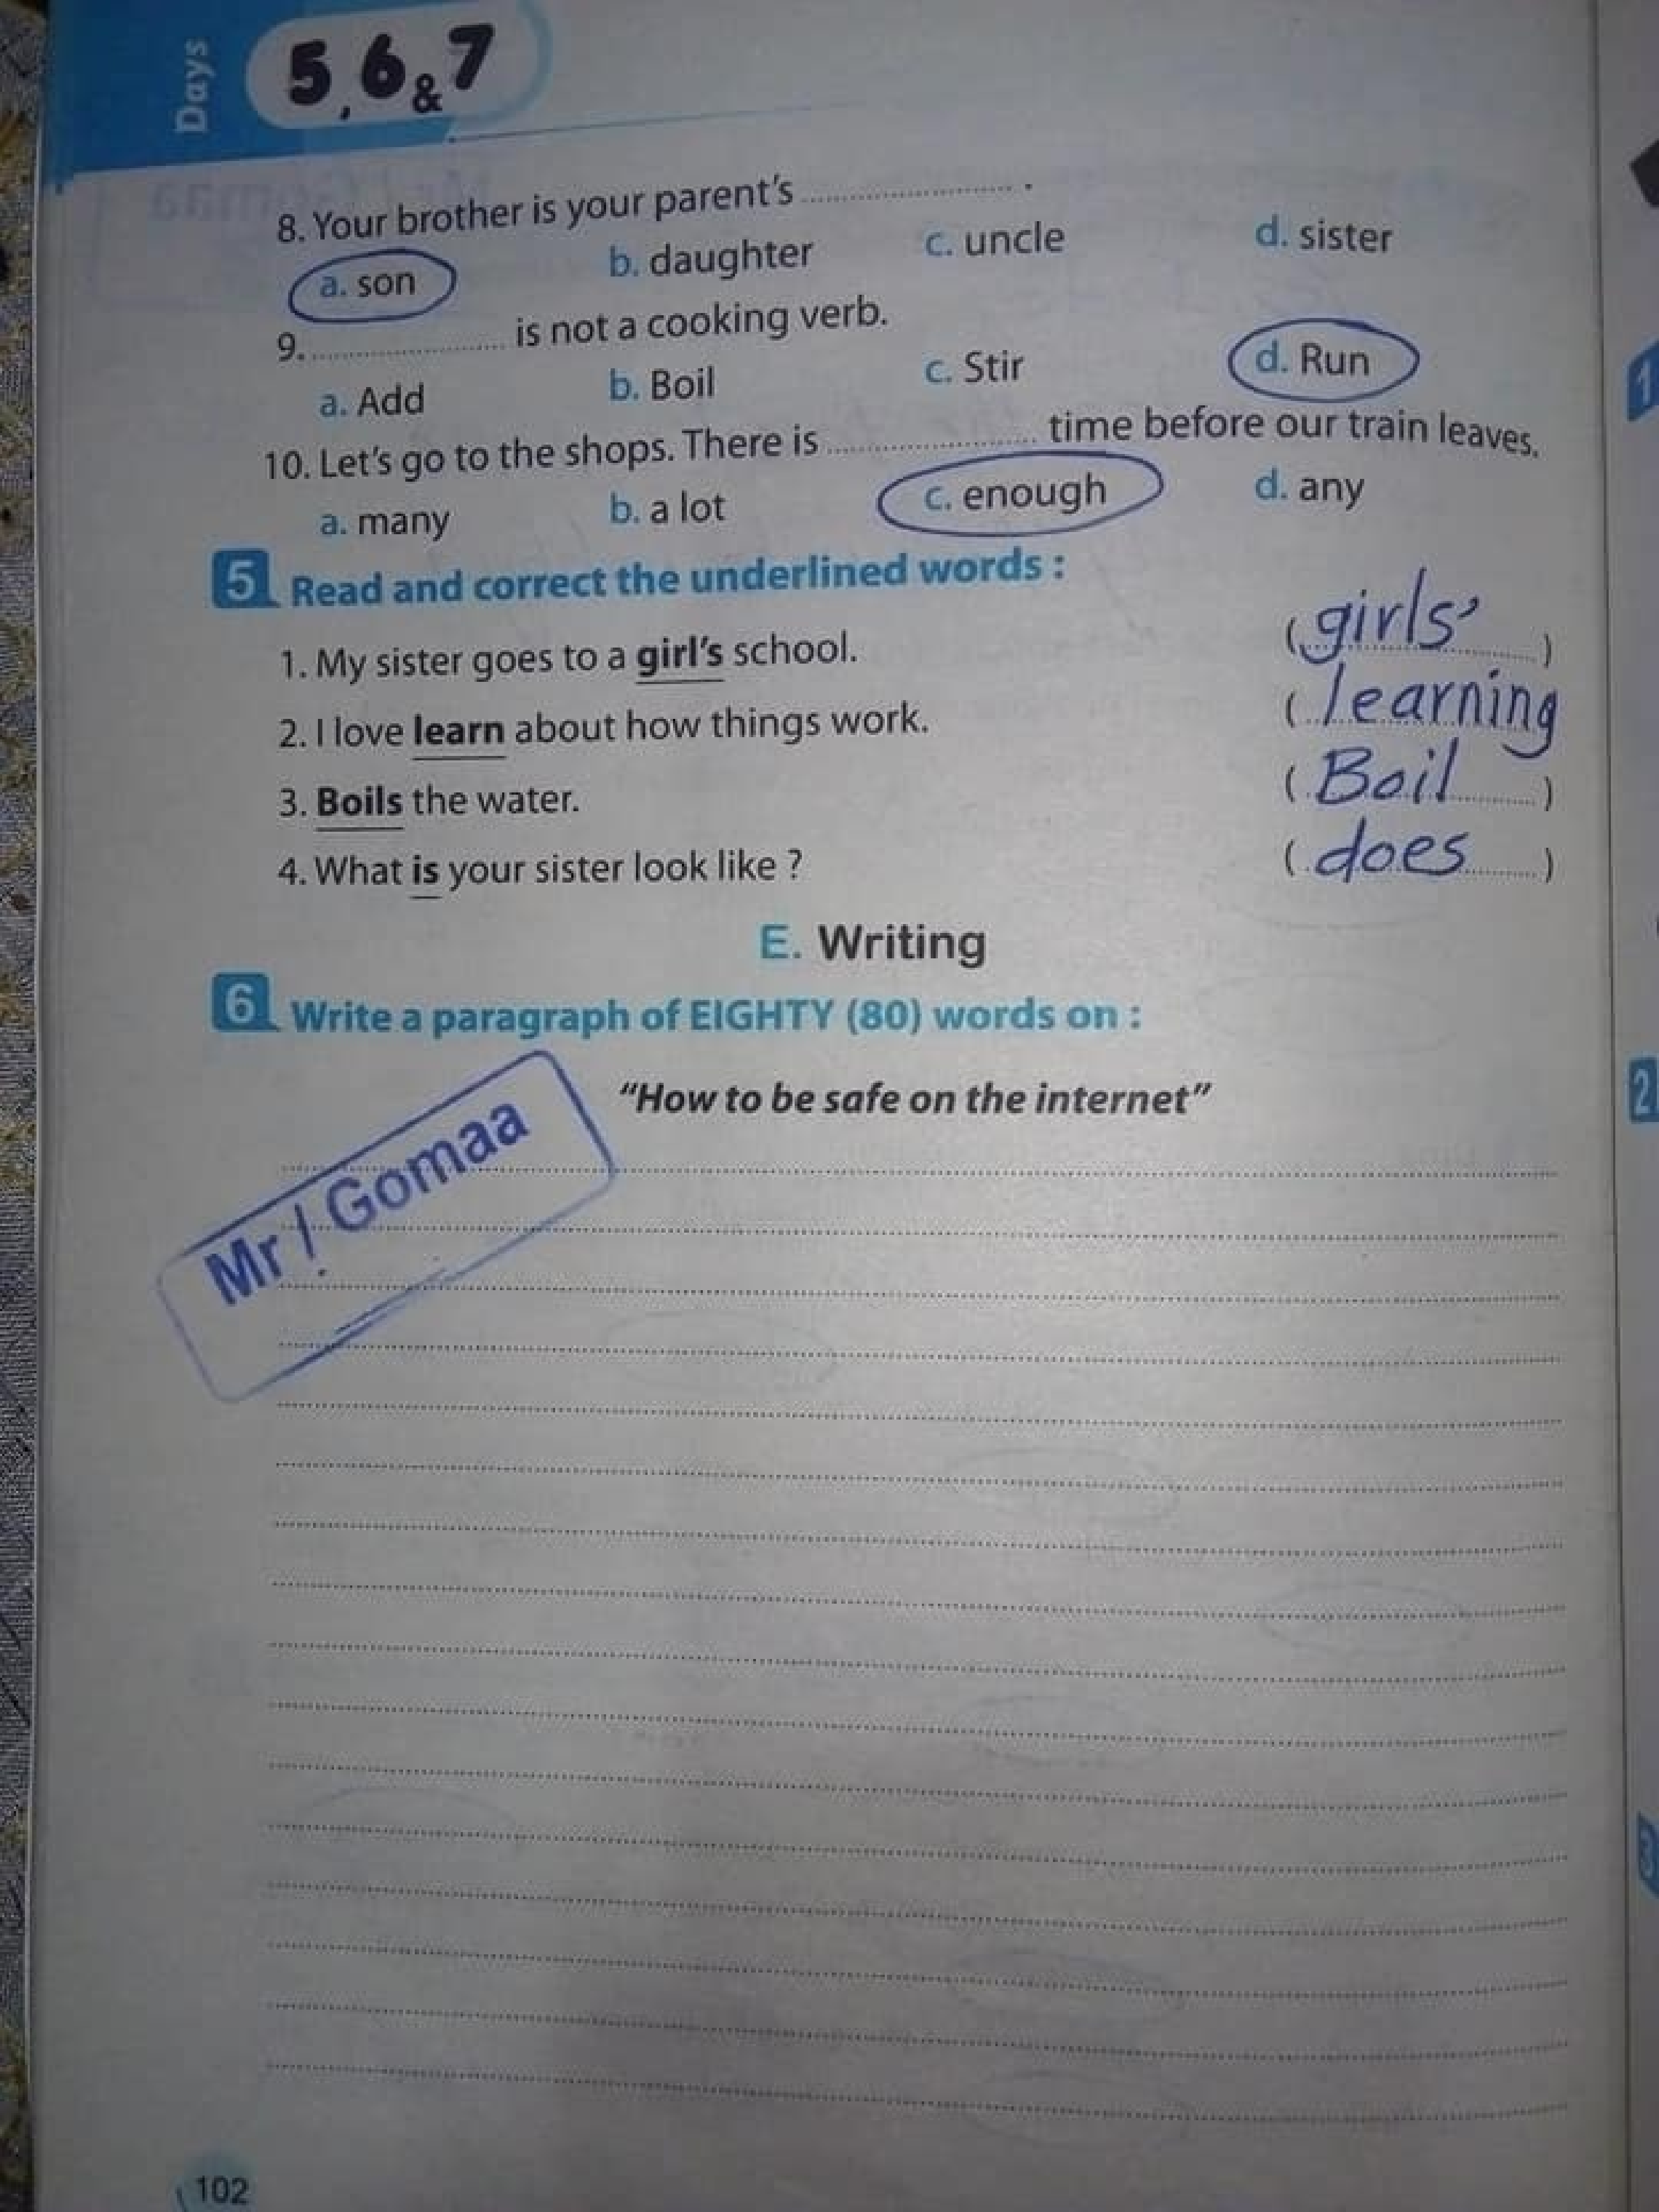 Days 5, 6 & 7
8. Your brother is your parent's .................... .
a. son b. daughter c. uncle d. sister
9. .................... is not a cooking verb.
a. Add b. Boil c. Stir d. Run
10. Let's go to the shops. There is .................... time before our train leaves.
a. many b. a lot c. enough d. any
5 Read and correct the underlined words :
1. My sister goes to a girl's school. (girls')
2. I love learn about how things work. (learning
3. Boils the water. (Boil)
4. What is your sister look like ? (does)
E. Writing
6 Write a paragraph of EIGHTY (80) words on :
"How to be safe on the internet"
Mr / Gomaa
102
1
2
3